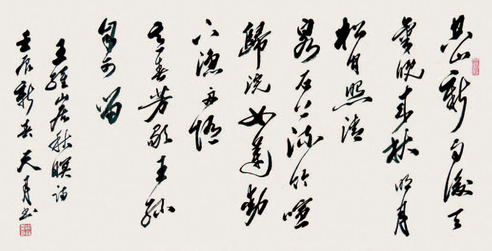 空山新雨後天
氣晚來秋明月
松間照清
泉石上流竹喧
歸浣女蓮動
下漁舟隨
意春芳歇王孫
自可留
王維山居秋暝詩
壬辰新春天月书